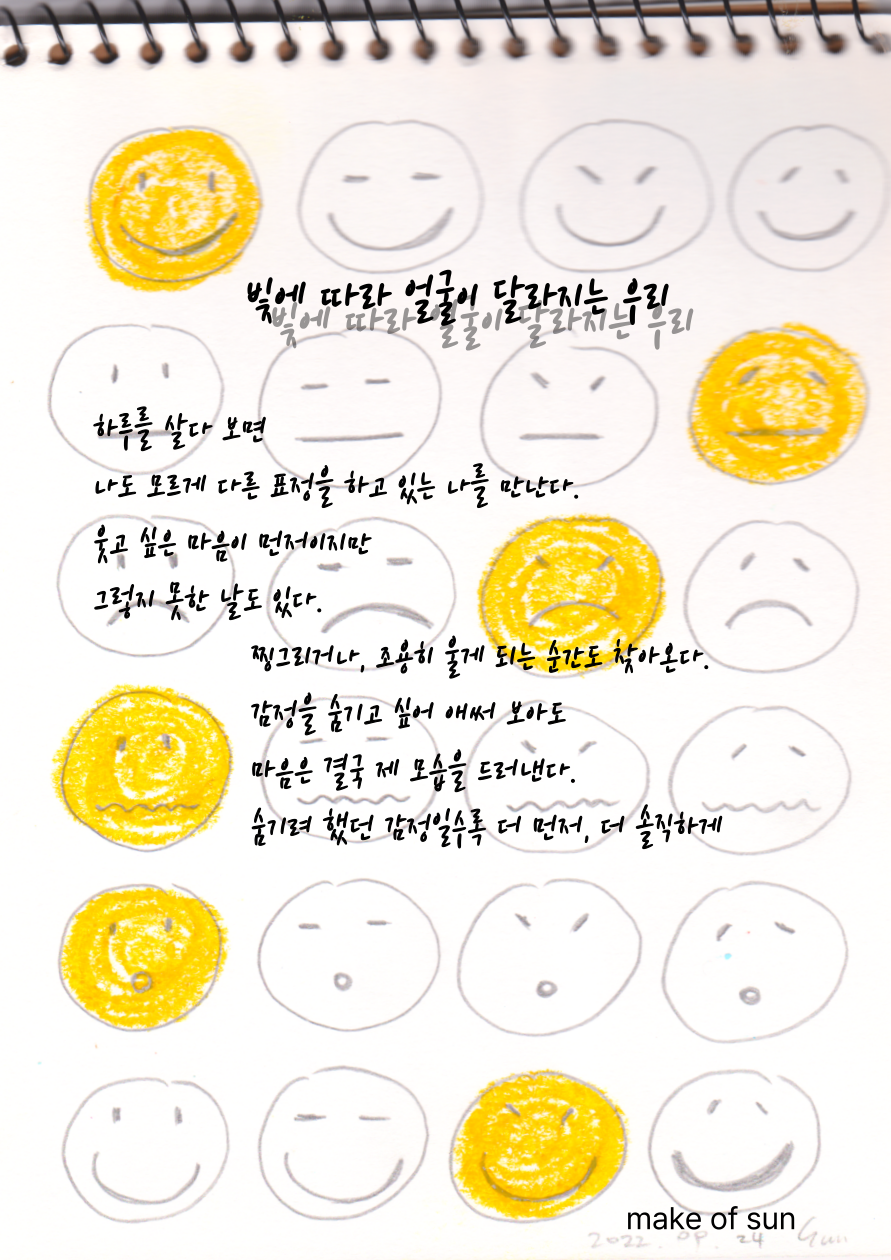 빛에 따라 얼굴이 달라지는 우리
빛에 따라 얼굴이 달라지는 우리
하루를 살다 보면
나도 모르게 다른 표정을 하고 있는 나를 만난다.
웃고 싶은 마음이 먼저이지만
그렇지 못한 날도 있다.
찡그리거나, 조용히 울게 되는 순간도 찾아온다.
감정을 숨기고 싶어 애써 보아도
마음은 결국 제 모습을 드러낸다.
숨기려 했던 감정일수록 더 먼저, 더 솔직하게
make of sun
2022. 09. 24 Sun